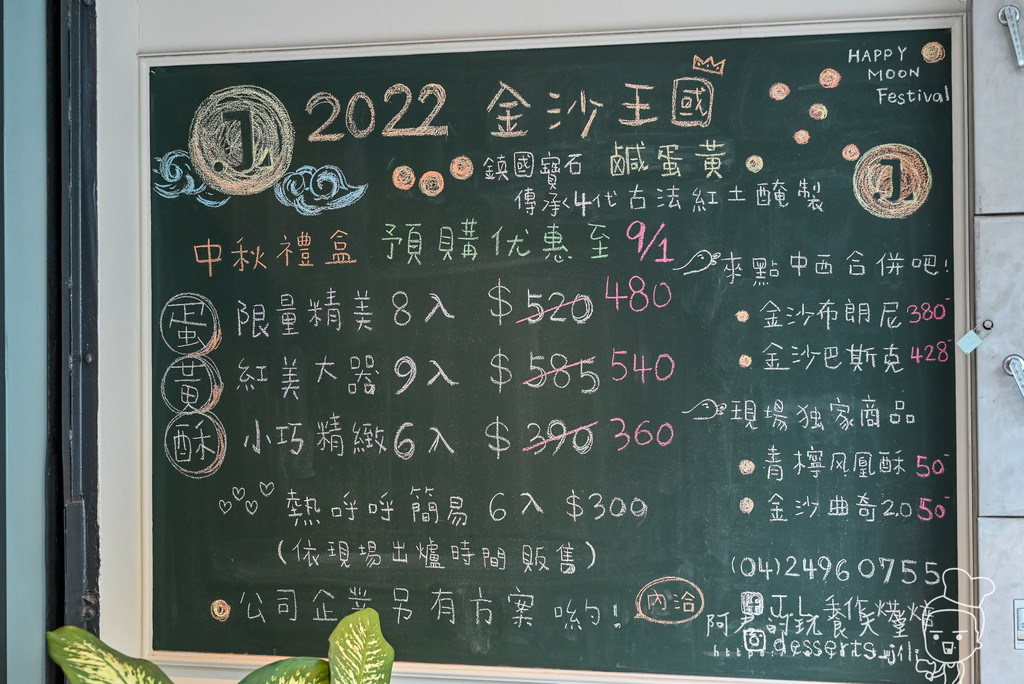 HAPPY
MOON
Festival
J.
2022 金沙王國
鎮國寶石 鹹蛋黃
傳承4代古法紅土醃製
J
中秋禮盒 預購优惠至9/1
蛋黃酥
限量精美8入 $520 480
紅美大器9入 $585 540
小巧精緻6入 $390 360
熱呼呼簡易6入 $300
(依現場出爐時間販售)
公司企業另有方案喲! 內洽
來點中西合併吧!
金沙布朗尼380-
金沙巴斯克428-
現場独家商品
青檸凤凰酥50-
金沙曲奇2.0 50-
(04)24960755
J.L手作烘焙
desserts_jl